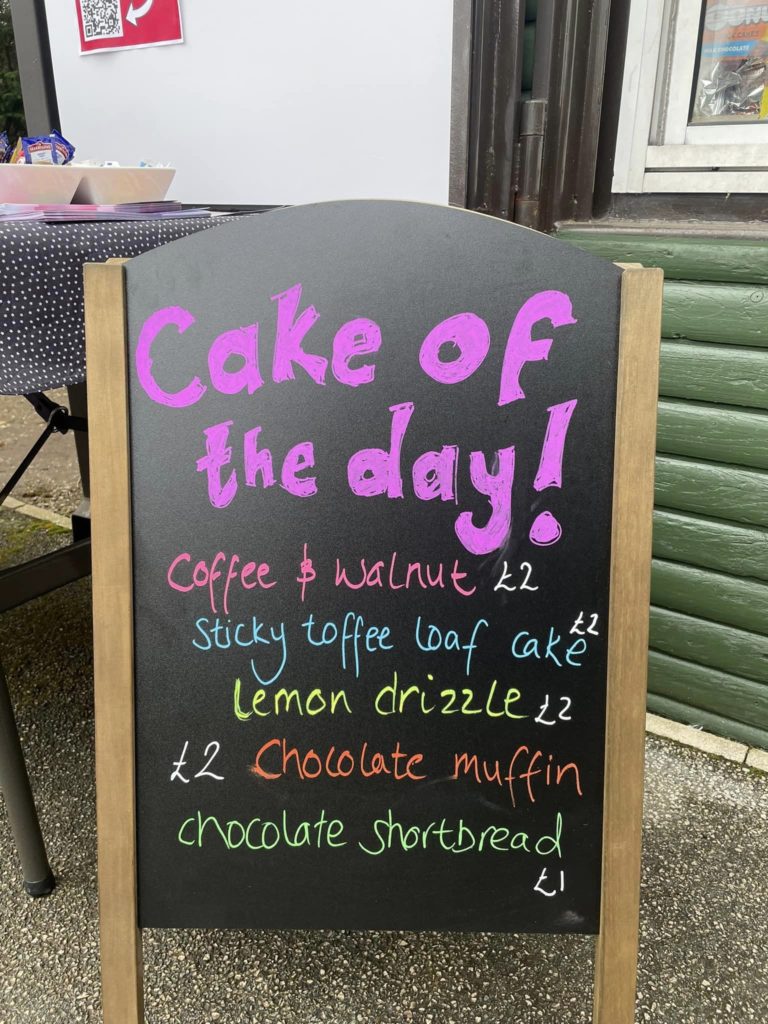 Cake of
the day!
Coffee & Walnut £2
Sticky toffee loaf cake £2
Lemon drizzle £2
£2 Chocolate muffin
chocolate shortbread
£1
MILK CHOCOLATE